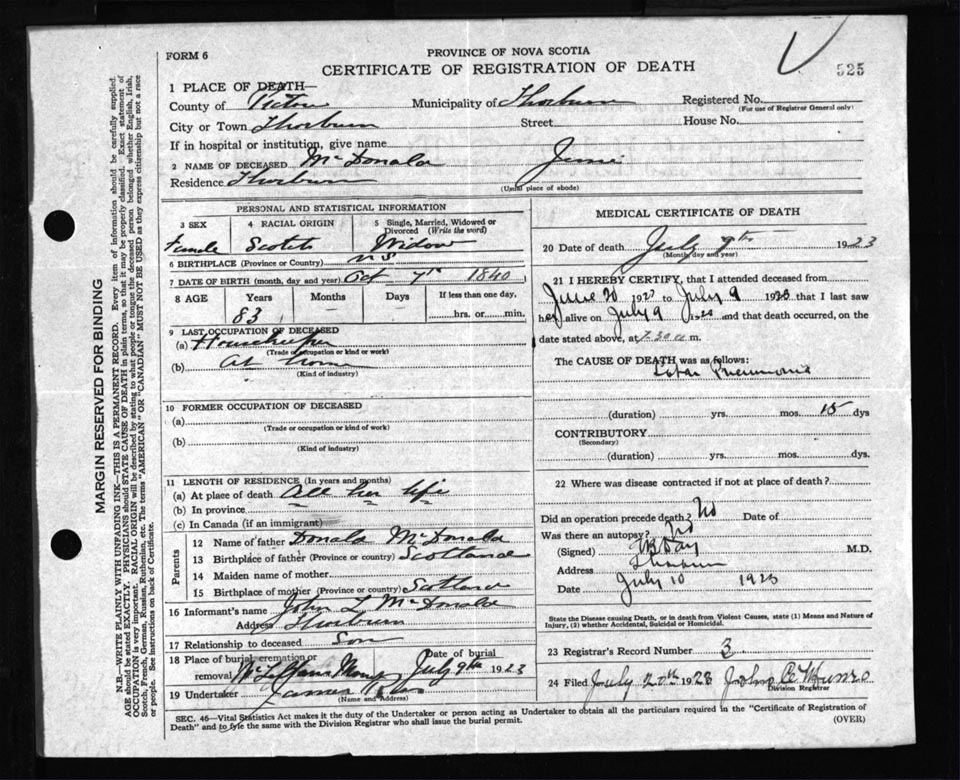 FORM 6
PROVINCE OF NOVA SCOTIA
CERTIFICATE OF REGISTRATION OF DEATH
525
1 PLACE OF DEATH—
County of Pictou Municipality of Thorburn Registered No.
(For use of Registrar General only)
City or Town Thorburn Street House No.
If in hospital or institution, give name
2 NAME OF DECEASED McDonald
Residence Thorburn
(Usual place of abode)
PERSONAL AND STATISTICAL INFORMATION
3 SEX 4 RACIAL ORIGIN 5 Single, Married, Widowed or Divorced (Write the word)
Female Scotch Widow
6 BIRTHPLACE (Province or Country) NS
7 DATE OF BIRTH (month, day and year) Oct 7th 1840
8 AGE Years Months Days If less than one day,
83 – – hrs. or min.
9 LAST OCCUPATION OF DECEASED
(a) Housekeeper
(Trade occupation or kind of work)
(b) At home
(Kind of industry)
10 FORMER OCCUPATION OF DECEASED
(a)
(Trade or occupation or kind of work)
(b)
(Kind of industry)
11 LENGTH OF RESIDENCE (In years and months)
(a) At place of death All her life
(b) In province
(c) In Canada (if an immigrant)
Parents
12 Name of father Donald McDonald
13 Birthplace of father (Province or country) Scotland
14 Maiden name of mother
15 Birthplace of mother (Province or country) Scotland
16 Informant's name John L McDonald
Address Thorburn
17 Relationship to deceased Son
18 Place of burial, cremation or removal Date of burial July 9th 1923
19 Undertaker James
(Name and Address)
MEDICAL CERTIFICATE OF DEATH
20 Date of death July 7th 1923
(Month, day and year)
21 I HEREBY CERTIFY, that I attended deceased from
June 20 1923 to July 9 1923 that I last saw
her alive on July 9 and that death occurred, on
date stated above, at 7.30 a m.
The CAUSE OF DEATH was as follows:
Lobar Pneumonia
(duration) yrs. mos. 15 dys
CONTRIBUTORY
(Secondary)
(duration) yrs. mos. dys.
22 Where was disease contracted if not at place of death?
Did an operation precede death? No Date of
Was there an autopsy? No
(Signed) Day M.D.
Address Thorburn
Date July 10 1923
State the Disease causing Death, or in death from Violent Causes, state (1) Means and Nature of Injury, (2) whether Accidental, Suicidal or Homicidal.
23 Registrar's Record Number 3
24 Filed July 20th 1923 John C Munro
Division Registrar
SEC. 46—Vital Statistics Act makes it the duty of the Undertaker or person acting as Undertaker to obtain all the particulars required in the "Certificate of Registration of
Death" and to fyle the same with the Division Registrar who shall issue the burial permit.
(OVER)
MARGIN RESERVED FOR BINDING
N.B.—WRITE PLAINLY WITH UNFADING INK—THIS IS A PERMANENT RECORD. Every item of information should be carefully supplied.
AGE should be stated EXACTLY. PHYSICIANS should STATE CAUSE OF DEATH in plain terms, so that it may be properly classified. Exact statement of
OCCUPATION is very important. RACIAL ORIGIN will be described by stating to what people or tongue the deceased person belonged whether English, Irish,
Scotch, French, German, Russian, Ruthenian, etc. The terms "AMERICAN" OR "CANADIAN" MUST NOT BE USED as they express citizenship but not a race
or people. See instructions on back of Certificate.